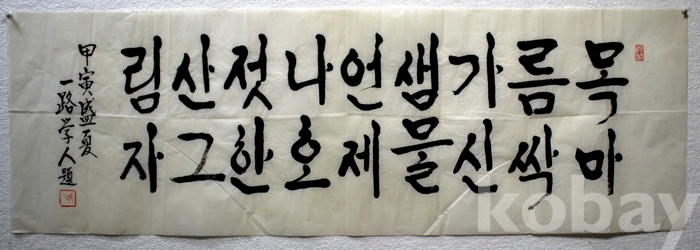 목마
름싹
가신
샘물
언제
나호
젓한
산그
림자
甲寅盛夏
一路学人題
kobay